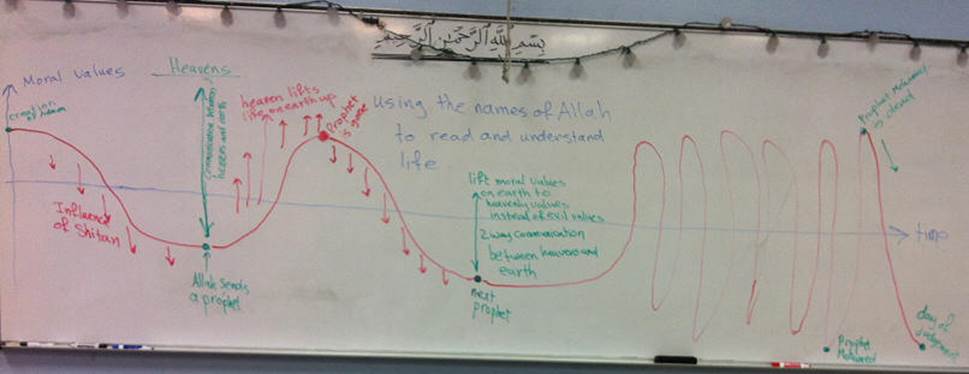 بِسْمِ اللَّهِ الرَّحْمَٰنِ الرَّحِيمِ
Moral values
Heavens
creation
of Adam
Communication between
heavens and earth
heaven lifts
life on earth up
Prophet
is gone
Using the names of Allah
to read and understand
life
Influence
of Shitan
Allah sends
a prophet
lift moral values
on earth to
heavenly values
instead of evil values
2 way communication
between heavens and
earth
next
prophet
Prophet
is
time
Prophet
day of
judgment